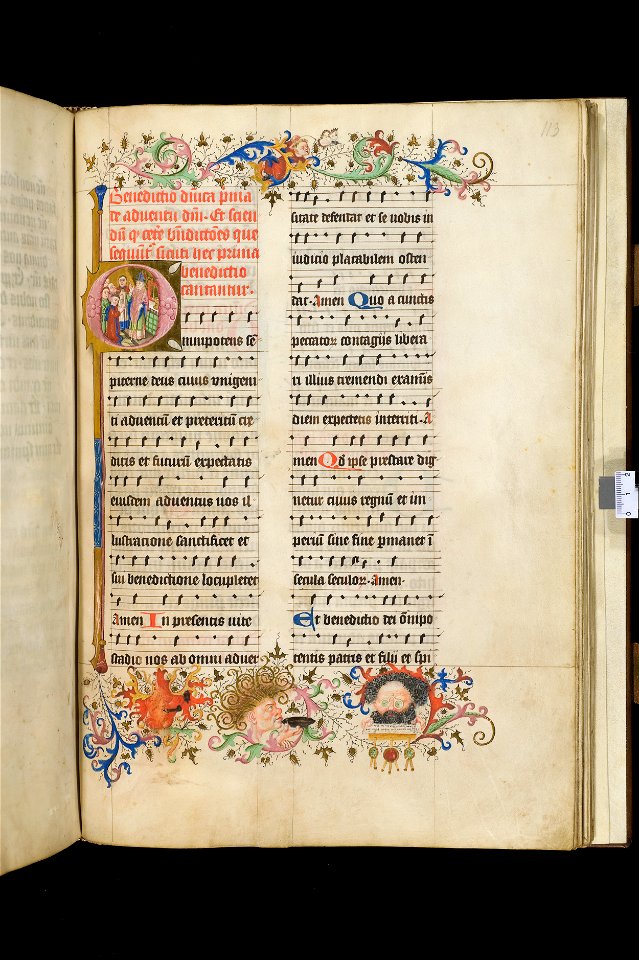 113
Benedictio diuīa p̄ma
de aduentu dn̄i. Et scien
dū q̄ cete bn̄dictōes que
sequūt' sicuti hec prima
benedictio
cantantur.
mnipotens se
piterne deus cuius vnigeni
ti aduentū et preteritū cre
ditis et futurū expectatis
eiusdem aduentus uos il
lustracione sanctificet et
sui benedictione locupletet
Amen In presentis uite
stadio uos ab omni aduer
sitate defendat et se uobis in
iudicio placabilem osten
dat. Amen Quo a cunctis
peccatoꝝ contagijs libera
ti illius tremendi examīs
diem expectetis interriti. A
men Qd̄ ipse prestare dig
netur cuius regnū et im
periū sine fine p̄manet ī
secula seculoꝝ. Amen.
Et benedictio dei ōnipo
tentis patris et filij et sp̄i